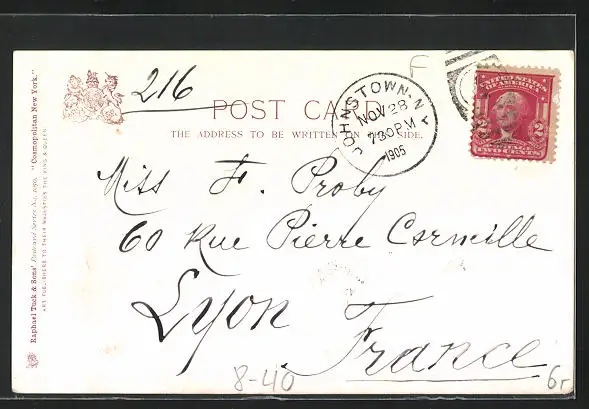 216
F
POST CARD
THE ADDRESS TO BE WRITTEN ON THIS SIDE.
JOHNSTOWN, N.Y.
NOV 28
730PM
1905
UNITED STATES
OF AMERICA
2 2
POSTAGE
TWO CENTS
Miss F. Proby
60 Rue Pierre Corneille
Lyon
France
8-40
Raphael Tuck & Sons' Postcard Series No. 1030. "Cosmopolitan New York."
ART PUBLISHERS TO THEIR MAJESTIES THE KING & QUEEN